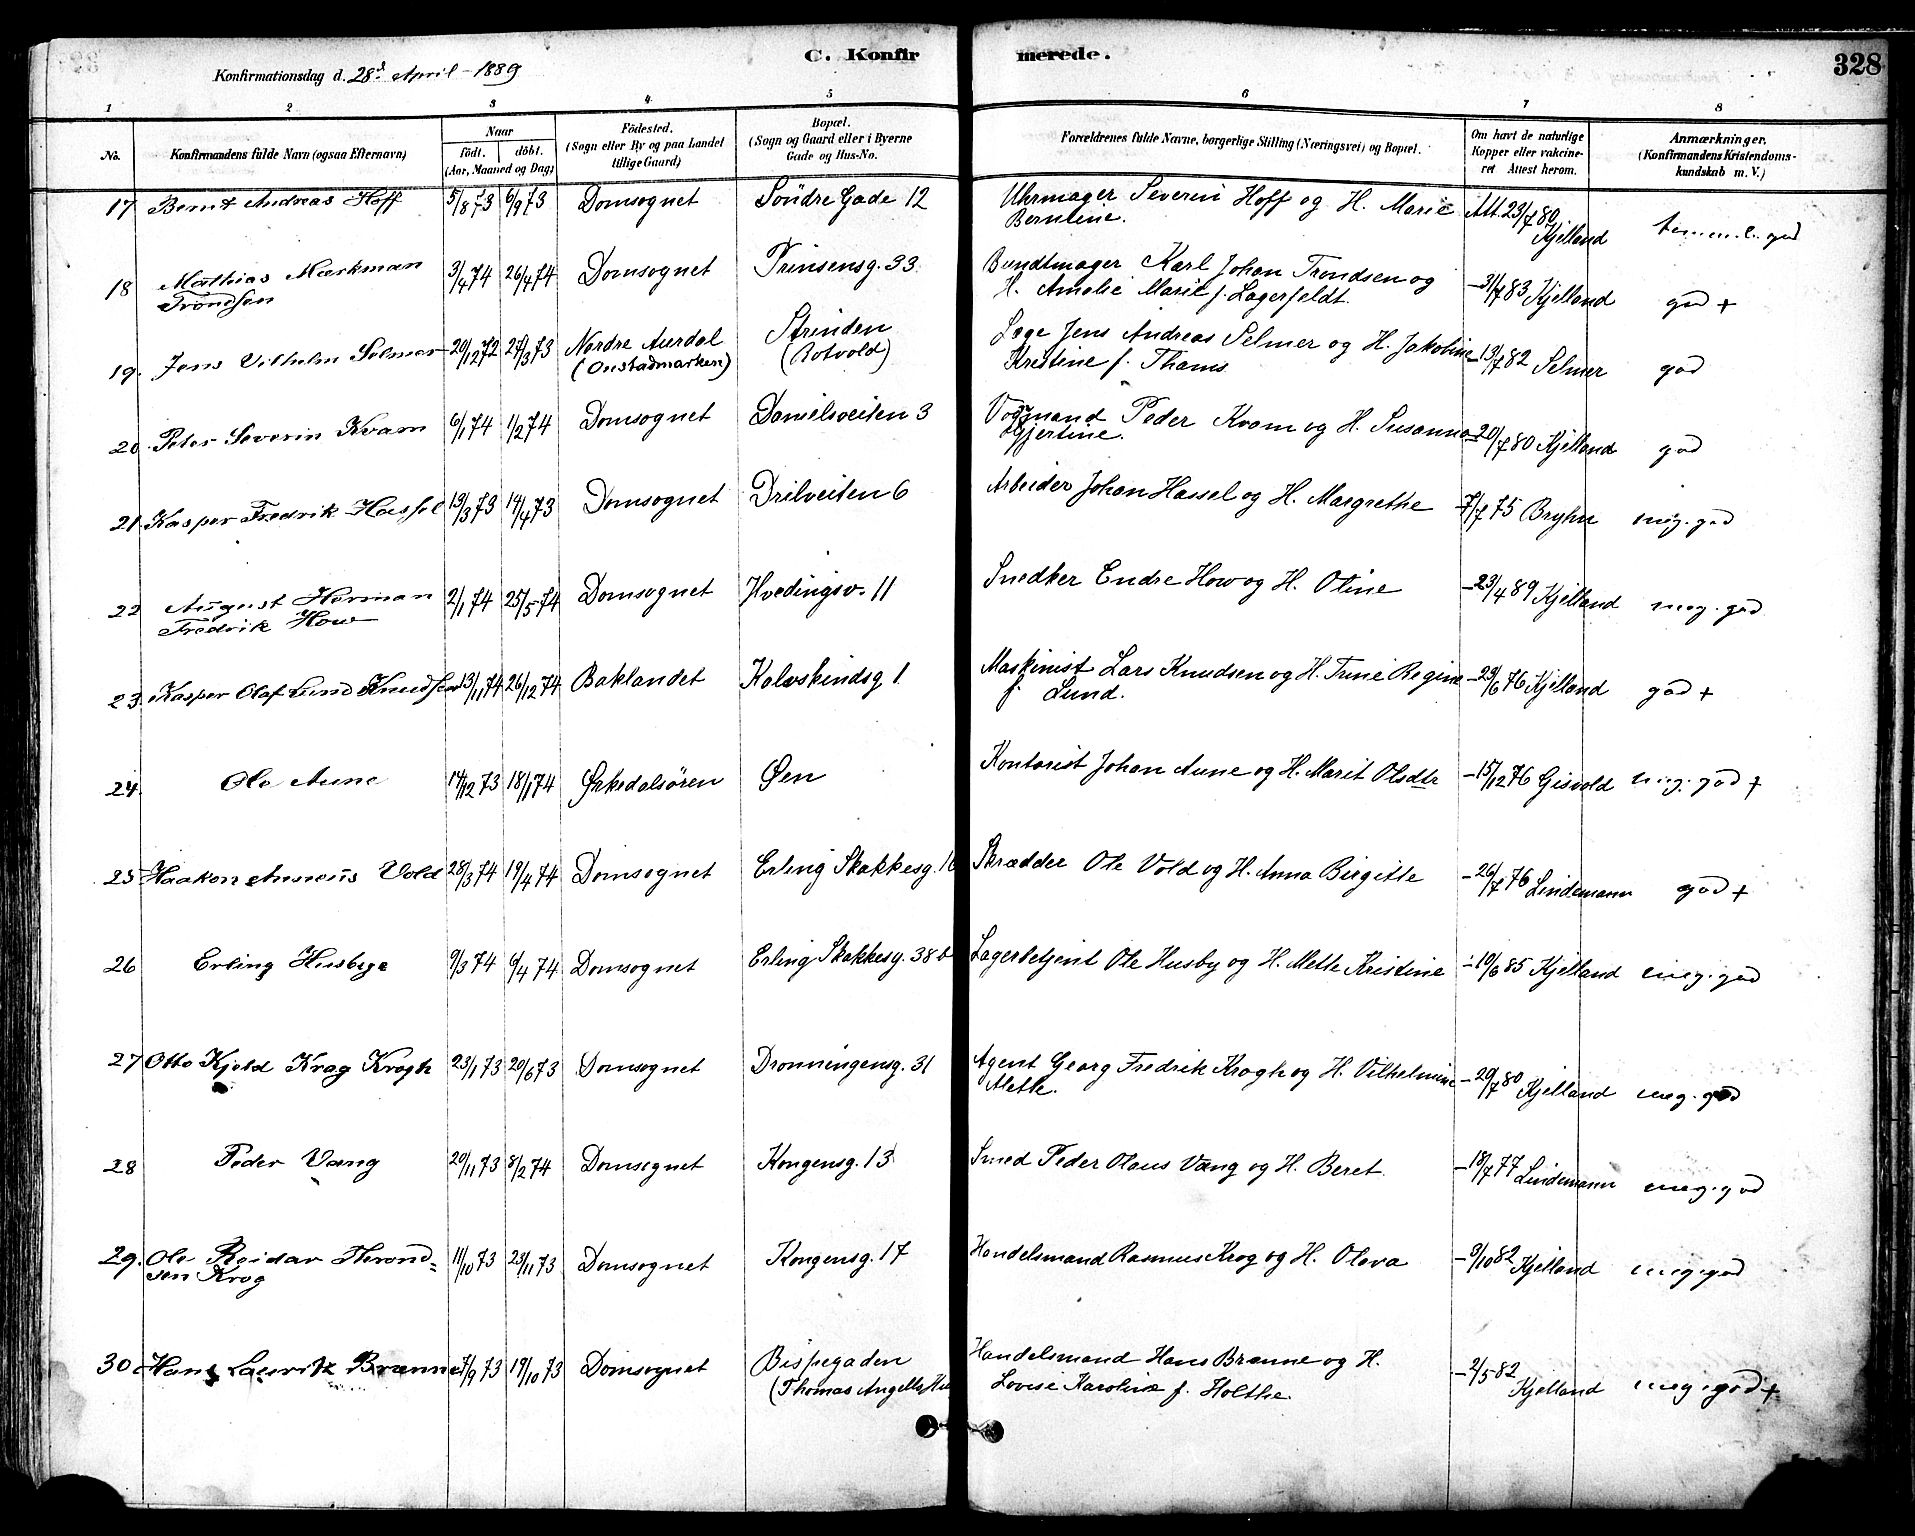 C. Konfirmerede.
328
Konfirmationsdag d. 28d April - 1889
1 2 3 4. 5 6 7 8
No.
Konfirmandens fulde Navn (ogsaa Efternavn)
Naar
födt. döbt.
(Aar, Maaned og Dag)
Födested.
(Sogn eller By og paa Landet
tillige Gaard)
Bopæl.
(Sogn og Gaard eller i Byerne
Gade og Hus-No.
Forældrenes fulde Navne, borgerlige Stilling (Næringsvei) og Bopæl.
Om havt de naturlige
Kopper eller vakcine-
ret Attest herom.
Anmærkninger.
(Konfirmandens Kristendoms-
kundskab m. V.)
17 Bernt Andreas Hoff 5/8 73 6/9 73 Domsognet Söndre Gade 12 Uhrmager Severin Hoff og H. Marie Att. 23/7 80
Berntine. Kjelland temmel. god
18 Mathias Markman 3/4 74 26/4 74 Domsognet Prinsensg. 33. Bundtmager Karl Johan Trondsen og
Trondsen H. Amalie Marie f. Lagerfeldt. - 31/7 83 Kjelland god +
19. Jens Vilhelm Selmer 20/12 72 27/3 73 Nordre Aurdal Strinden Læge Jens Andreas Selmer og H. Jakobine
(Onstadmarken) (Rotvold) Kristine f. Thams - 13/7 82 Selmer god
20. Peter Severin Kvam 6/1 74 1/2 74 Domsognet Danielsveiten 3 Vognmand Peder Kvam og H. Susanna
Hjertine. - 20/7 80 Kjelland god
21. Kasper Fredrik Hassel 13/3 73 14/4 73 Domsognet Drilveiten 6 Arbeider Johan Hassel og H. Margrethe 7/7 75 Bryhn meg. god
22 August Herman 2/1 74 25/5 74 Domsognet Hvedingsv. 11 Snedker Endre How og H. Oline - 23/4 89 Kjelland meg. god
Fredrik How
23. Kasper Olaf Lund Knudsen 13/11 74 26/12 74 Baklandet Kalvskindsg 1 Maskinist Lars Knudsen og H. Trine Regine - 29/6 76 Kjelland god +
f. Lund.
24. Ole Aune 14/12 73 18/1 74 Ørkedalsören Øen Kontorist Johan Aune og H. Marit Olsdtr - 15/12 76 Gisvold meg. god +
25 Haakon Anneus Vold 28/3 74 19/4 74 Domsognet Erling Skakkesg. 16 Skrædder Ole Vold og H. Anna Birgitte - 26/7 76 Lindemann god +
26 Erling Husbye 9/3 74 6/4 74 Domsognet Erling Skakkesg. 38 b Lagerbetjent Ole Husby og H. Mette Kristine - 10/6 85 Kjelland meg. god
27 Otto Kjeld Krag Krogh 23/1 73 20/6 73 Domsognet Dronningensg. 31 Agent Georg Fredrik Krogh og H. Vilhelmine
Alette. - 20/7 80 Kjelland meg. god
28 Peder Vang 20/11 73 8/2 74 Domsognet Kongensg. 13 Smed Peder Olaus Vang og H. Beret. - 18/7 77 Lindemann meg. god
29. Ole Reidar Thrond= 11/10 73 23/11 73 Domsognet Kongensg. 17 Handelsmand Rasmus Krog og H. Olava - 9/10 82 Kjelland meg. god
sen Krog
30 Hans Lauritz Brænne 7/9 73 19/10 73 Domsognet Bispegaden Handelsmand Hans Brænne og H. - 2/5 82
(Thomas Angells Lovise Karoline f. Holthe. Kjelland meg. god +